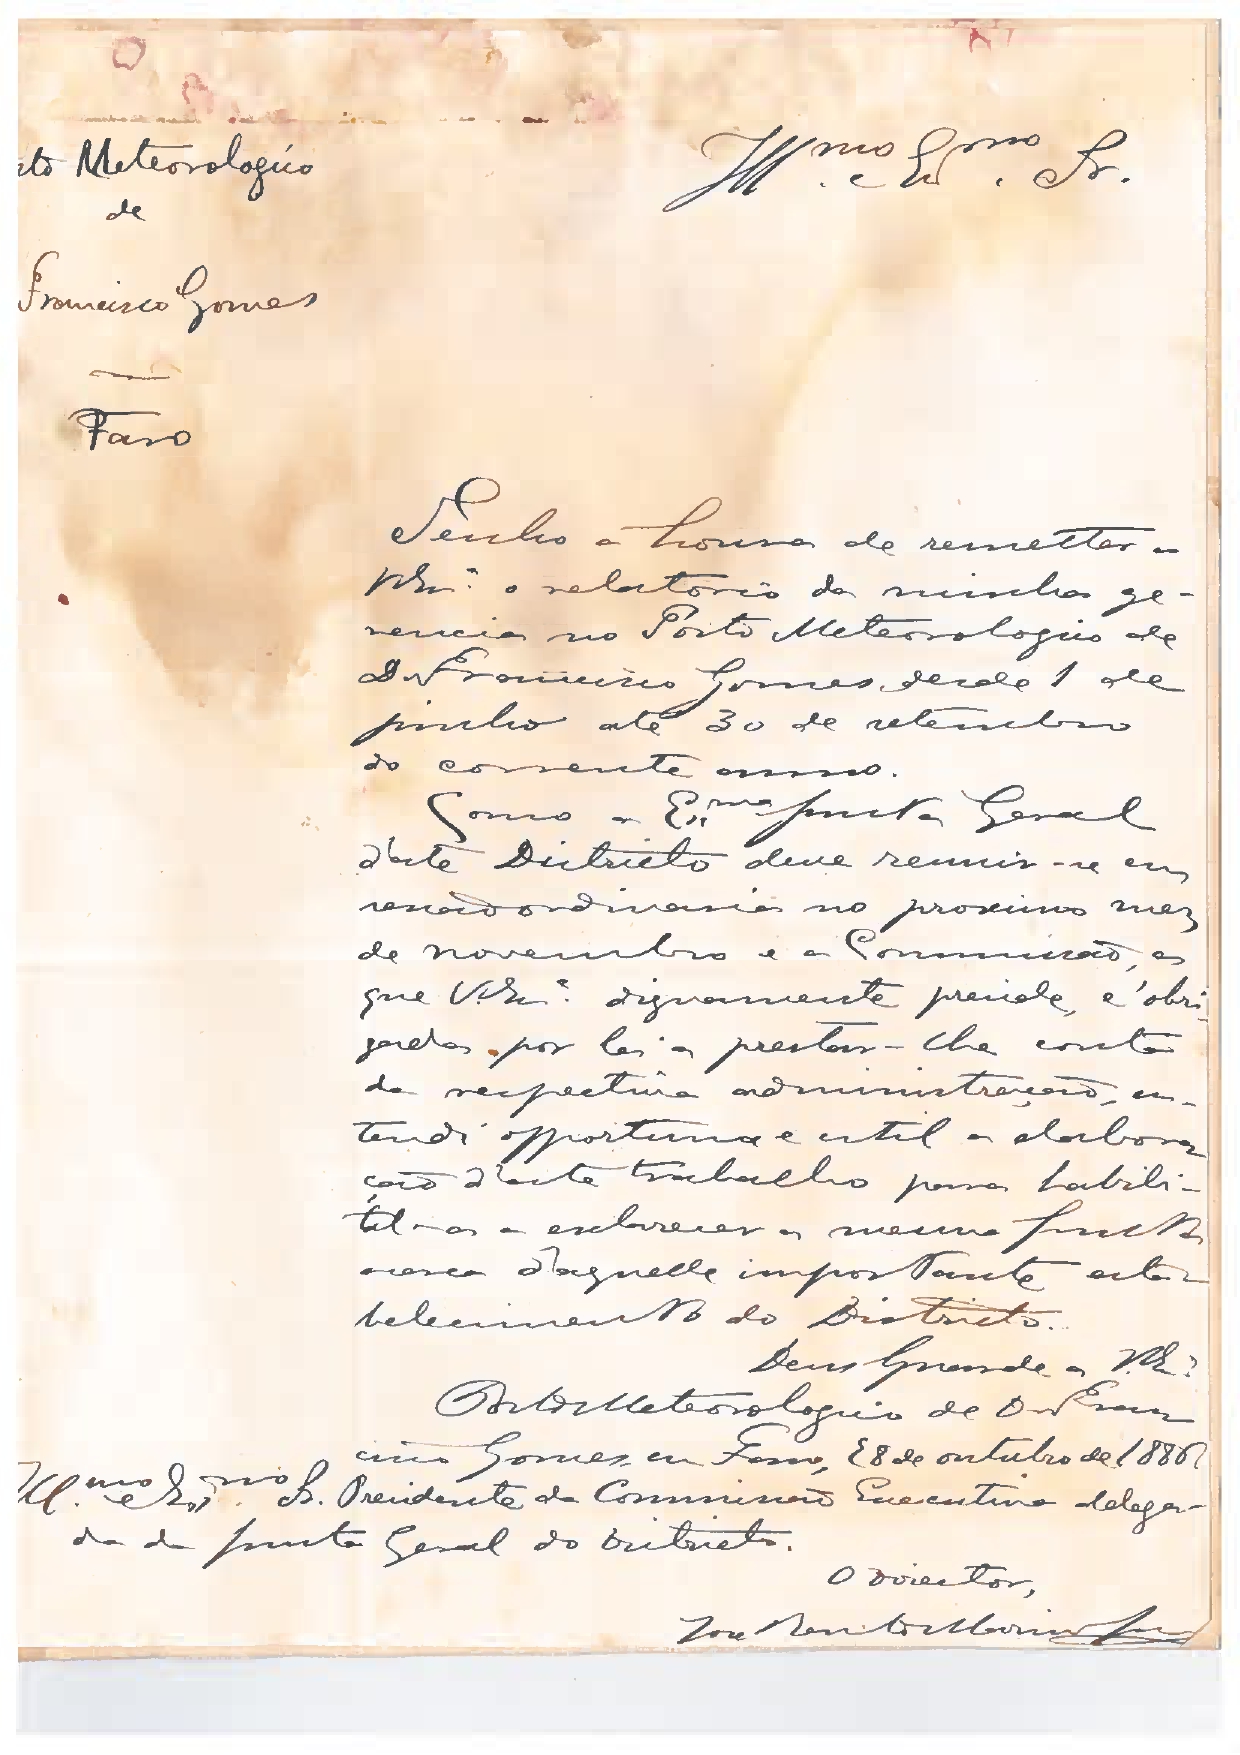 Meteorologico
de
Francisco Gomes
Faro
Ill.mo e Ex.mo Sr.
Tenho a honra de remetter a
V. Ex.ª o relatorio da minha ge-
rencia no Posto Meteorologico de
D. Francisco Gomes, desde 1 de
junho até 30 de setembro
do corrente anno.
Como a Ex.ma Junta Geral
d'este Districto deve reunir-se em
sessão ordinaria no proximo mez
de novembro e a Commissão, a
que V. Ex.ª dignamente preside, é obri-
gada por lei a prestar-lhe conta
da respectiva administração, en-
tendi opportuna e util a elabora
ção d'este trabalho para habili-
tal-a a esclarecer a mesma Junta
acerca d'aquelle importante esta-
belecimento do Districto.
Deus Guarde a V. Ex.ª
Posto Meteorologico de D. Fran
cisco Gomes, em Faro, 28 de outubro de 1886
Ill.mo e Ex.mo Sr. Presidente da Commissão Executiva delega-
da da Junta Geral do Districto.
O Director,
José